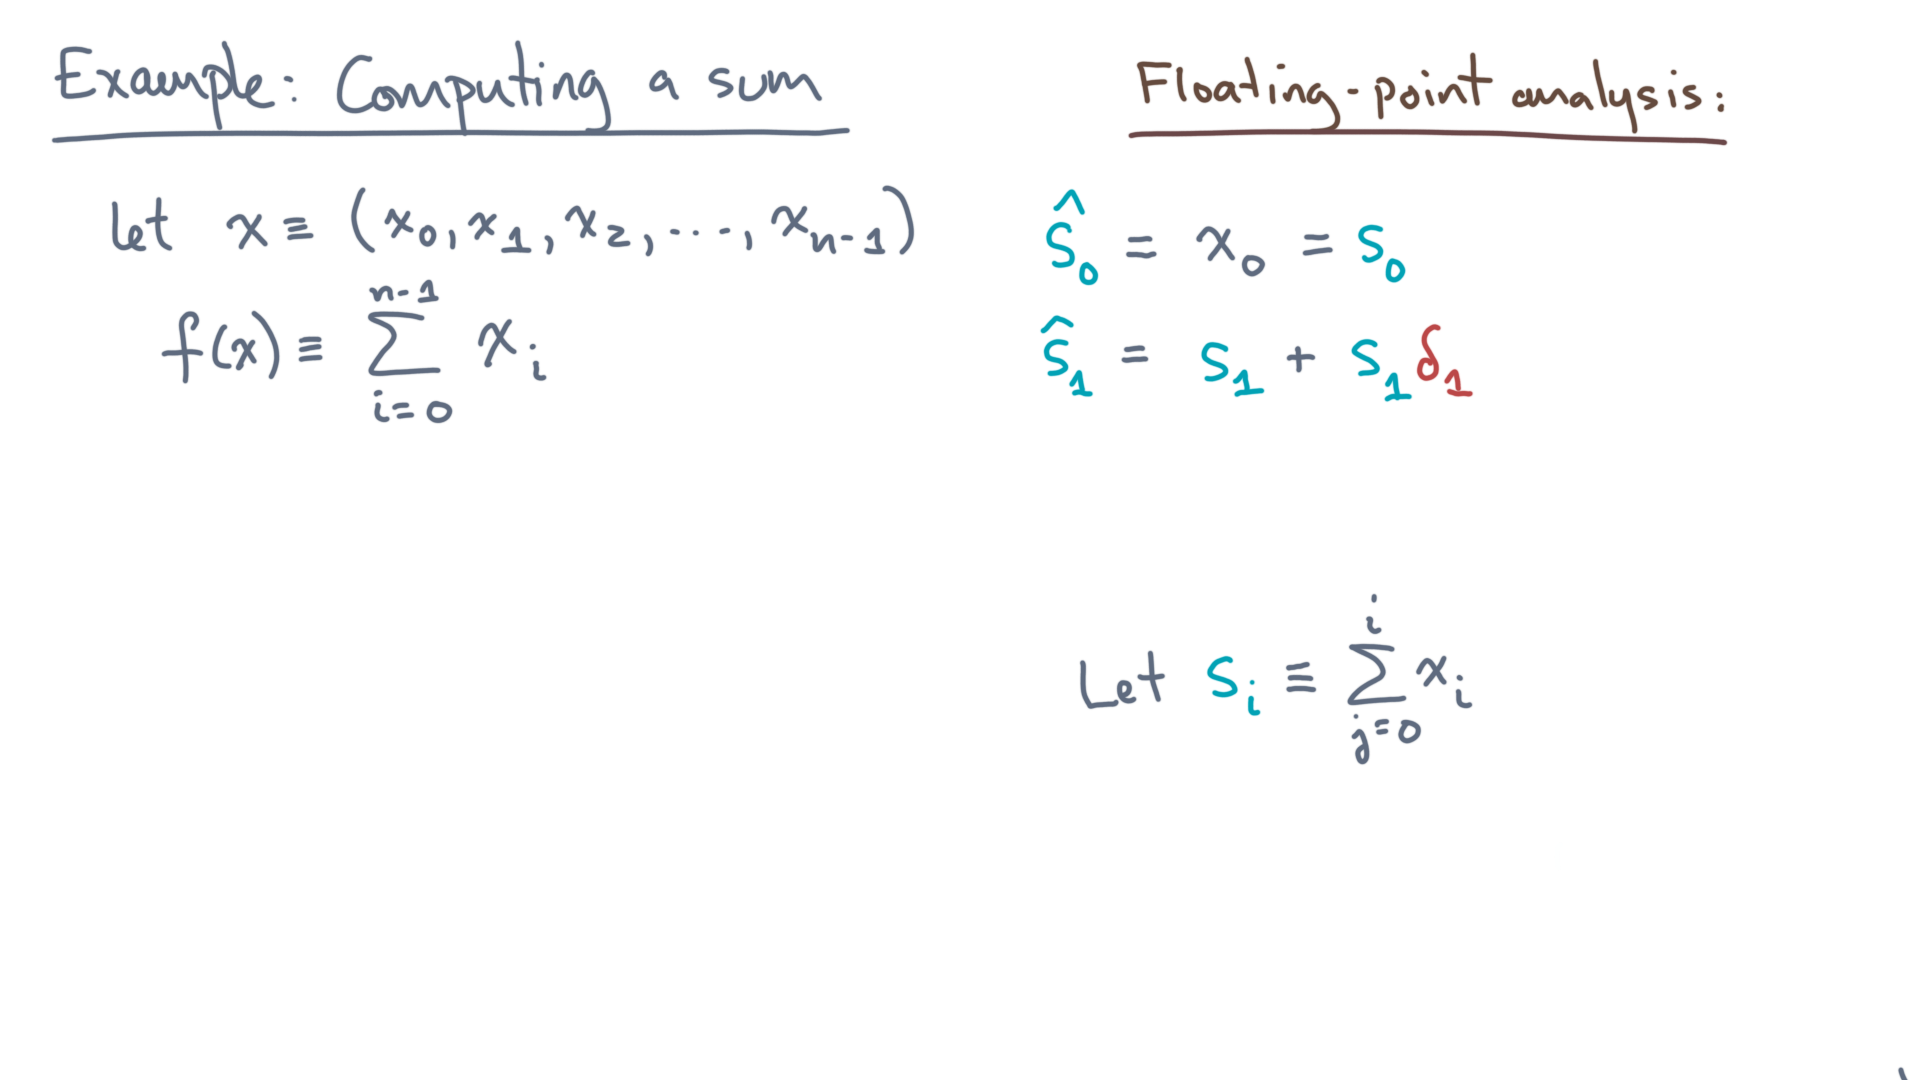 Example: Computing a sum
Let x ≡ (x₀, x₁, x₂, ..., xₙ₋₁)
n-1
f(x) ≡ ∑ xᵢ
i=0
Floating-point analysis:
ŝ₀ = x₀ = s₀
ŝ₁ = s₁ + s₁δ₁
i
Let sᵢ ≡ ∑ xᵢ
j=0